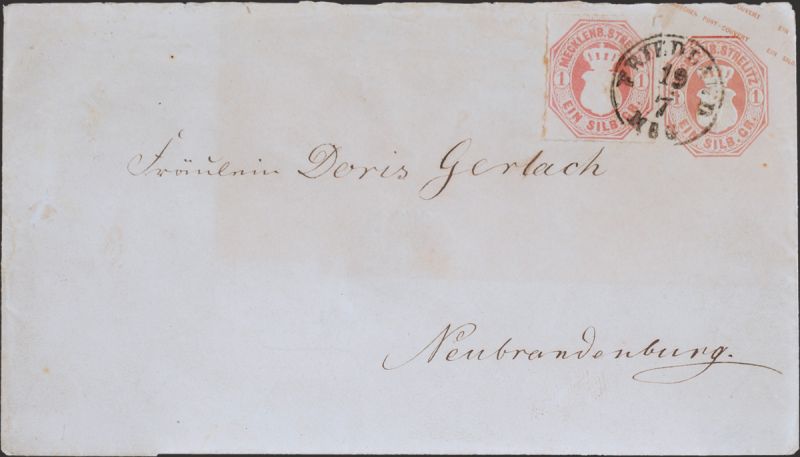 POST-COUVERT
EIN
MECKLENB. STRELITZ
1 1
EIN SILB. GR.
B. STRELITZ
1 1
EIN SILB. GR.
FRIEDLAND
19
7
Fräulein Doris Gerlach
Neubrandenburg.